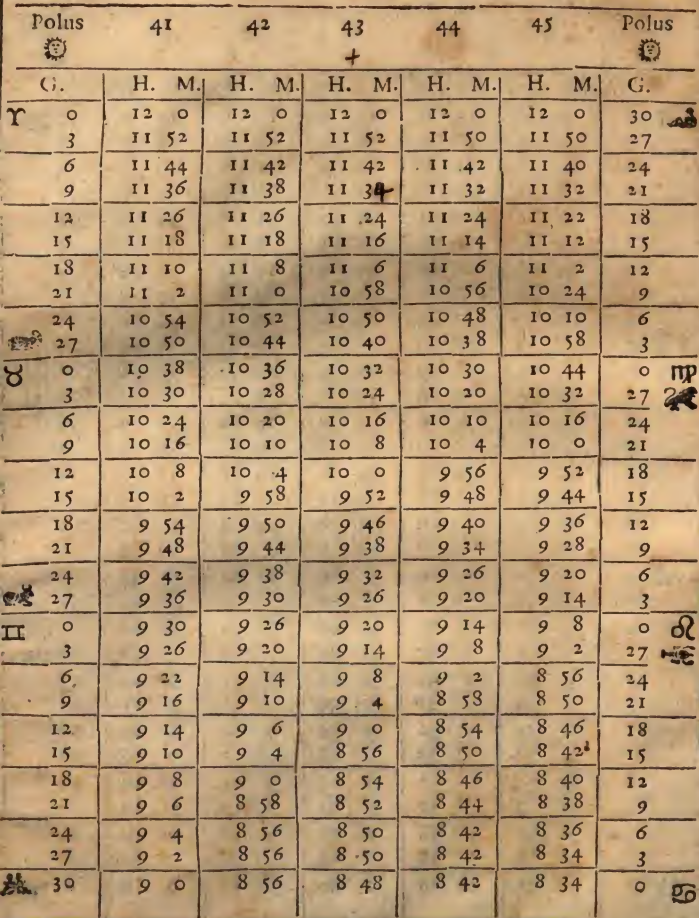 Polus 41 42 43 44 45 Polus
+
G. H. M. H. M. H. M. H. M. H. M. G.
♈ 0 12 0 12 0 12 0 12 0 12 0 30
3 11 52 11 52 11 52 11 50 11 50 27
6 11 44 11 42 11 42 11 42 11 40 24
9 11 36 11 38 11 34 11 32 11 32 21
12 11 26 11 26 11 24 11 24 11 22 18
15 11 18 11 18 11 16 11 14 11 12 15
18 11 10 11 8 11 6 11 6 11 2 12
21 11 2 11 0 10 58 10 56 10 24 9
24 10 54 10 52 10 50 10 48 10 10 6
27 10 50 10 44 10 40 10 38 10 58 3
♉ 0 10 38 10 36 10 32 10 30 10 44 0 ♍
3 10 30 10 28 10 24 10 20 10 32 27
6 10 24 10 20 10 16 10 10 10 16 24
9 10 16 10 10 10 8 10 4 10 0 21
12 10 8 10 4 10 0 9 56 9 52 18
15 10 2 9 58 9 52 9 48 9 44 15
18 9 54 9 50 9 46 9 40 9 36 12
21 9 48 9 44 9 38 9 34 9 28 9
24 9 42 9 38 9 32 9 26 9 20 6
27 9 36 9 30 9 26 9 20 9 14 3
♊ 0 9 30 9 26 9 20 9 14 9 8 0 ♌
3 9 26 9 20 9 14 9 8 9 2 27
6 9 22 9 14 9 8 9 2 8 56 24
9 9 16 9 10 9 4 8 58 8 50 21
12 9 14 9 6 9 0 8 54 8 46 18
15 9 10 9 4 8 56 8 50 8 42 15
18 9 8 9 0 8 54 8 46 8 40 12
21 9 6 8 58 8 52 8 44 8 38 9
24 9 4 8 56 8 50 8 42 8 36 6
27 9 2 8 56 8 50 8 42 8 34 3
30 9 0 8 56 8 48 8 42 8 34 0 ♋